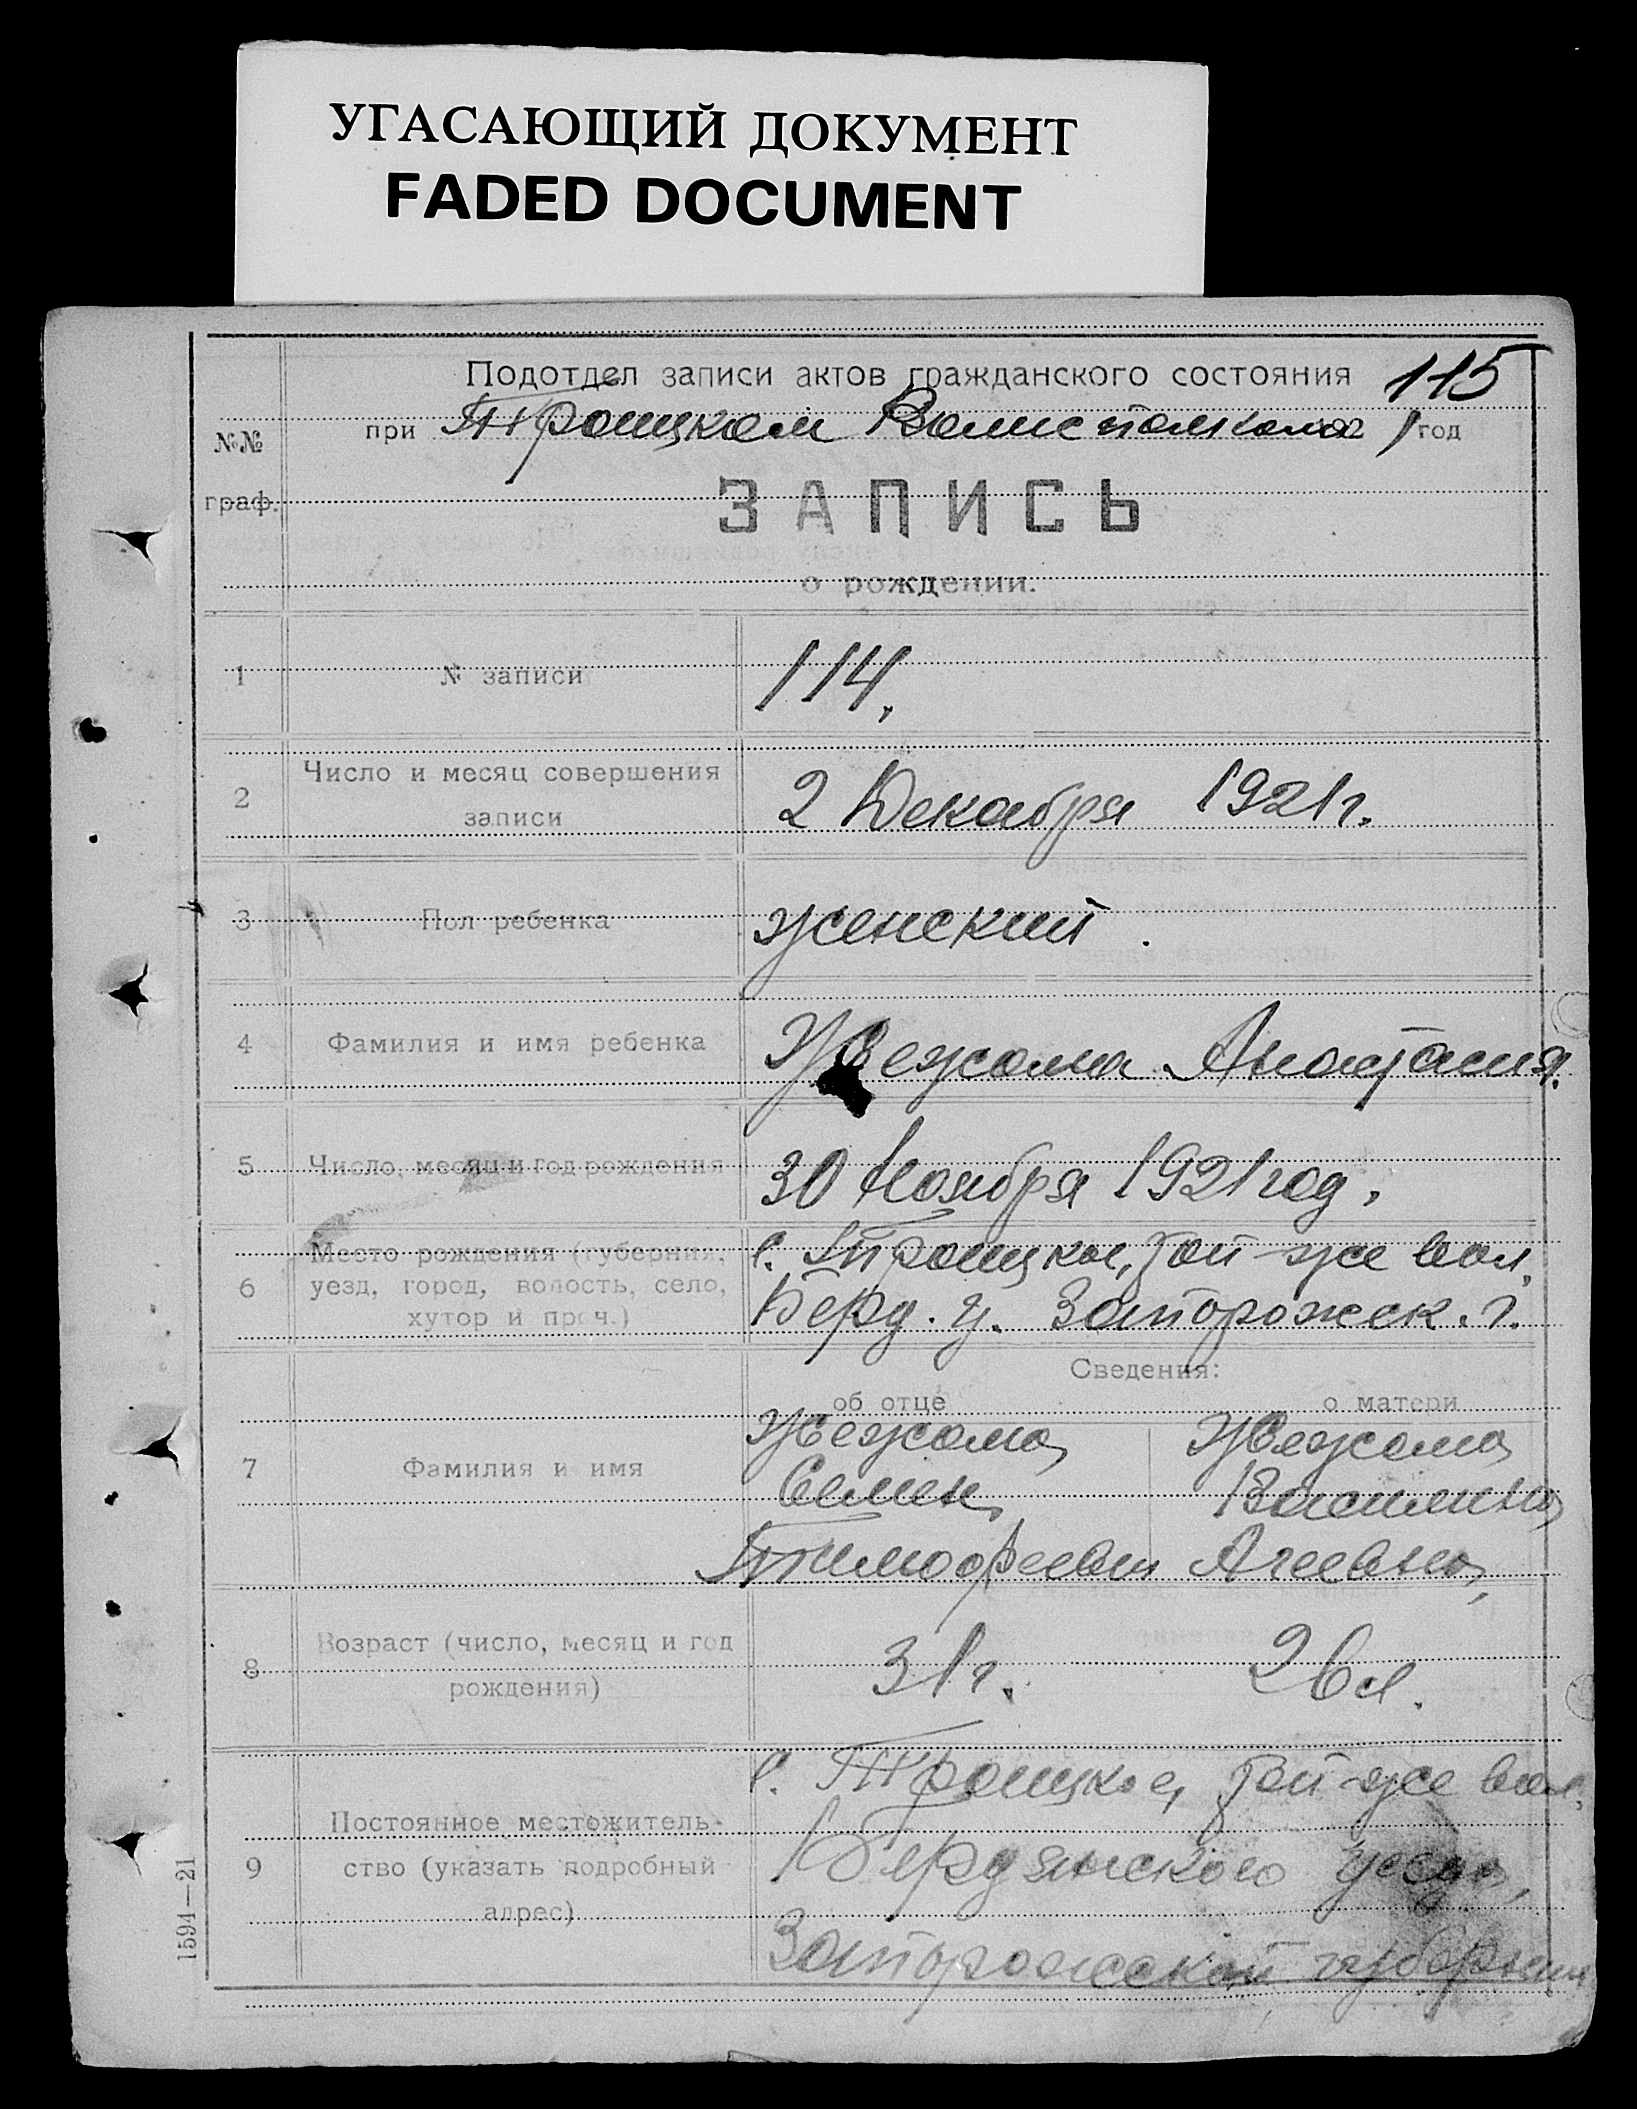 УГАСАЮЩИЙ ДОКУМЕНТ
FADED DOCUMENT
115
Подотдел записи актов гражданского состояния
при Троицком Волисполкома 1921 год
№№
граф.
ЗАПИСЬ
о рождении.
1 № записи 114.
2 Число и месяц совершения записи 2 Декабря 1921 г.
3 Пол ребенка женский.
4 Фамилия и имя ребенка Анастасия.
5 Число, месяц и год рождения 30 Ноября 1921 год.
6 Место рождения (губерния, с. Троицкое, той-же вол.
уезд, город, волость, село, Берд. у. Запорожск. г.
хутор и проч.)
Сведения:
об отце о матери
7 Фамилия и имя
Семен Василина
Тимофеевич Агеевна
8 Возраст (число, месяц и год рождения) 31 г. 26 л.
с. Троицкое, той-же вол.
9 Постоянное местожитель- Бердянского уезда,
ство (указать подробный
адрес) Запорожской губернии
1594—21